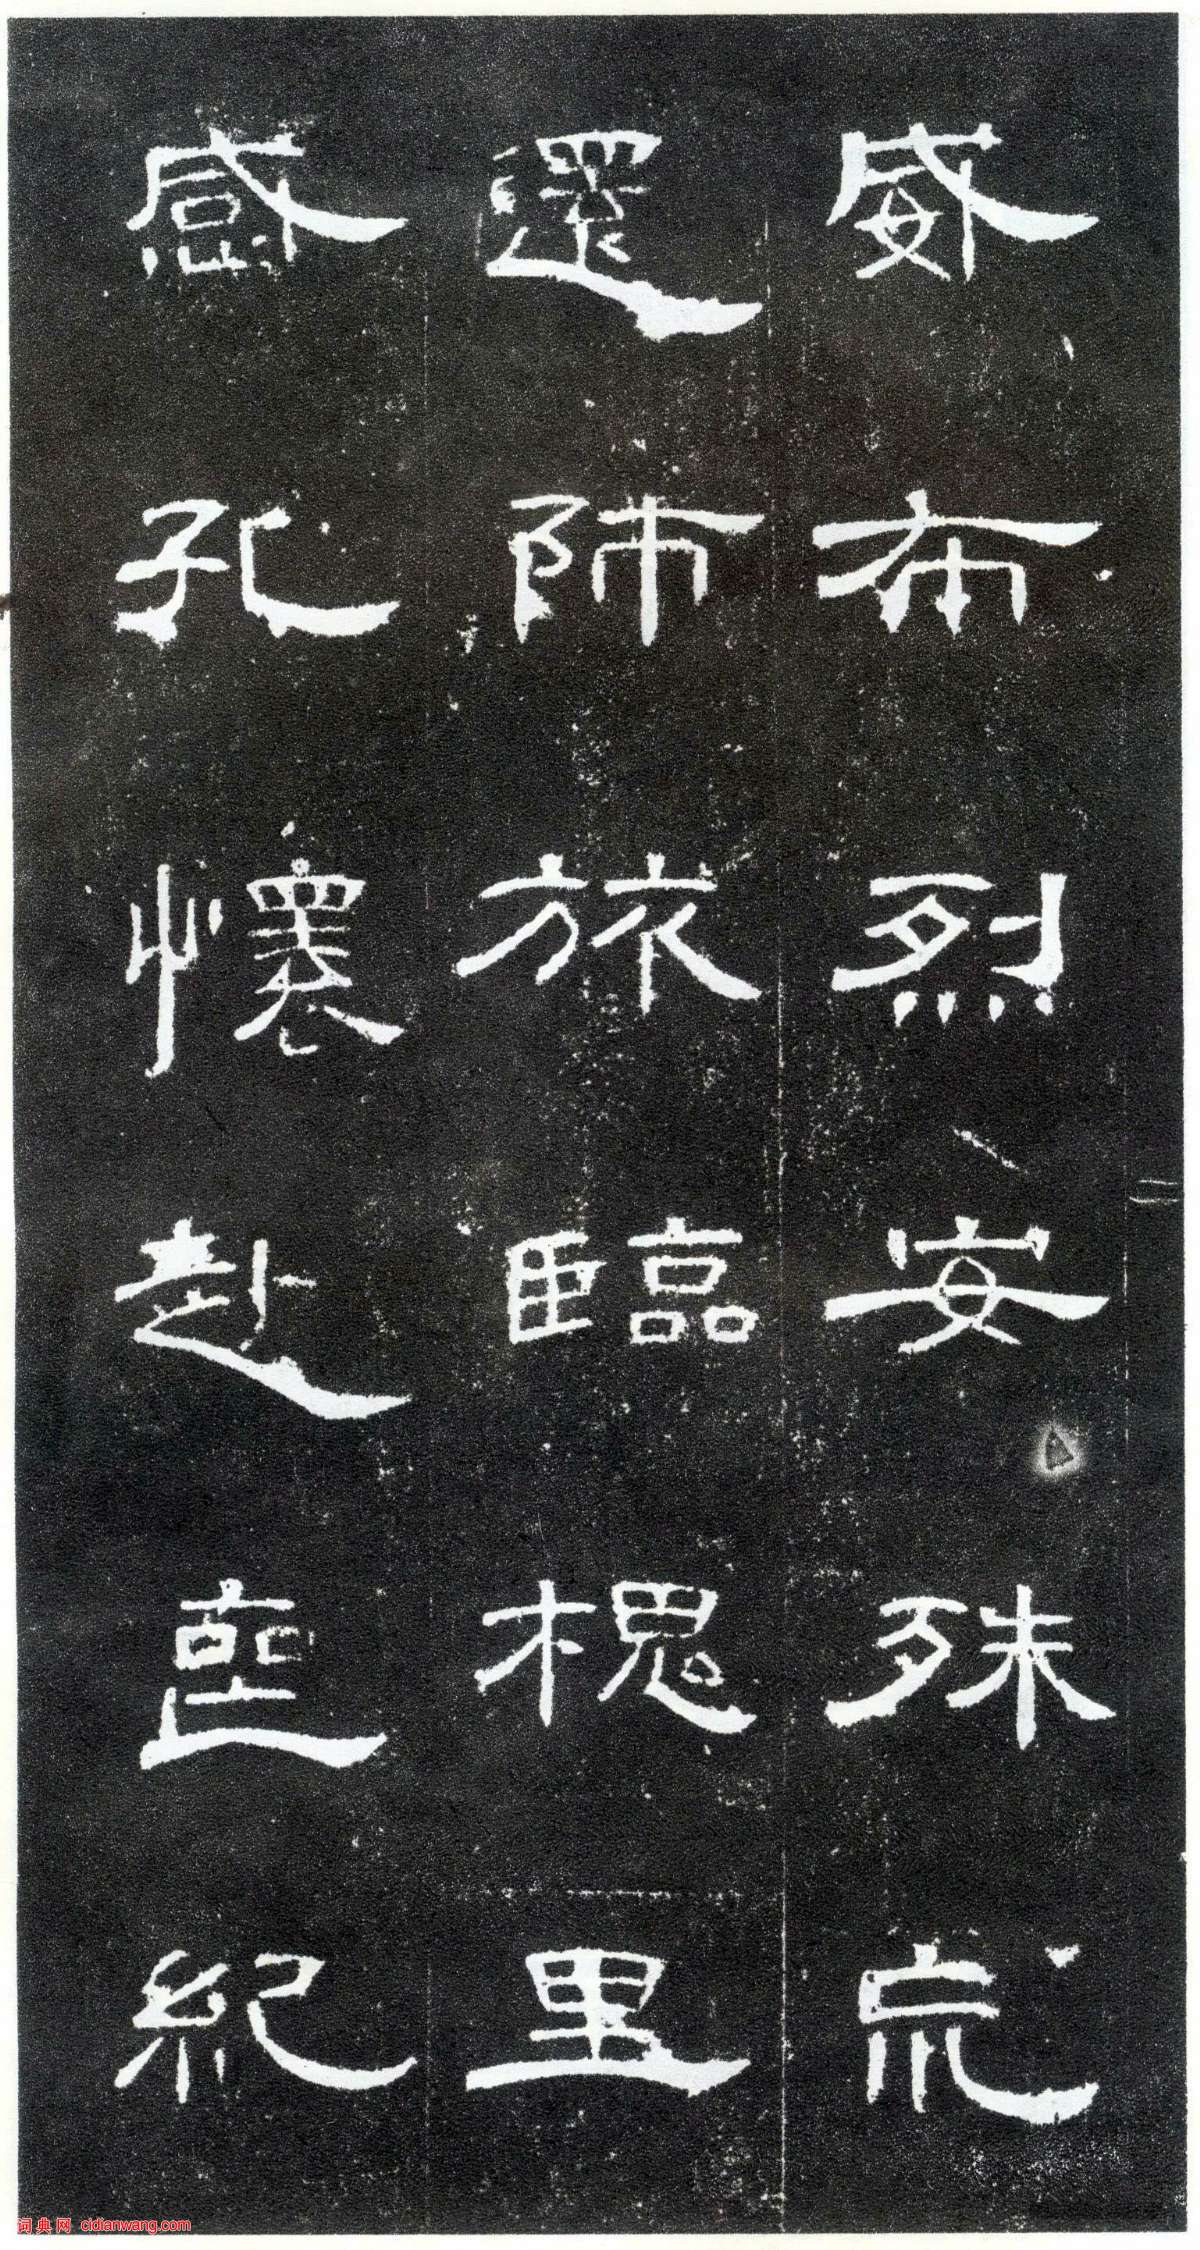 威布烈安殊巟
還師旅臨槐里
感孔懷赴喪紀
词典网 cidianwang.com